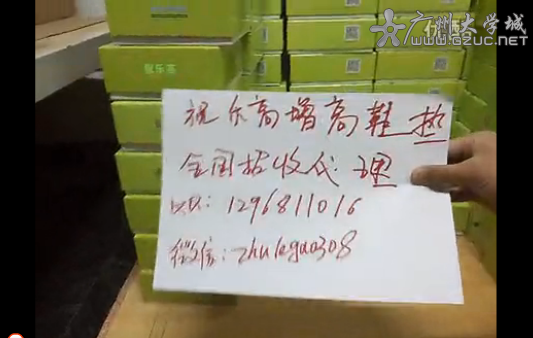 广州大学城
WWW.GZUC.NET
祝乐高增高鞋垫
全国招收代理
QQ: 1296811016
微信: zhulegao308